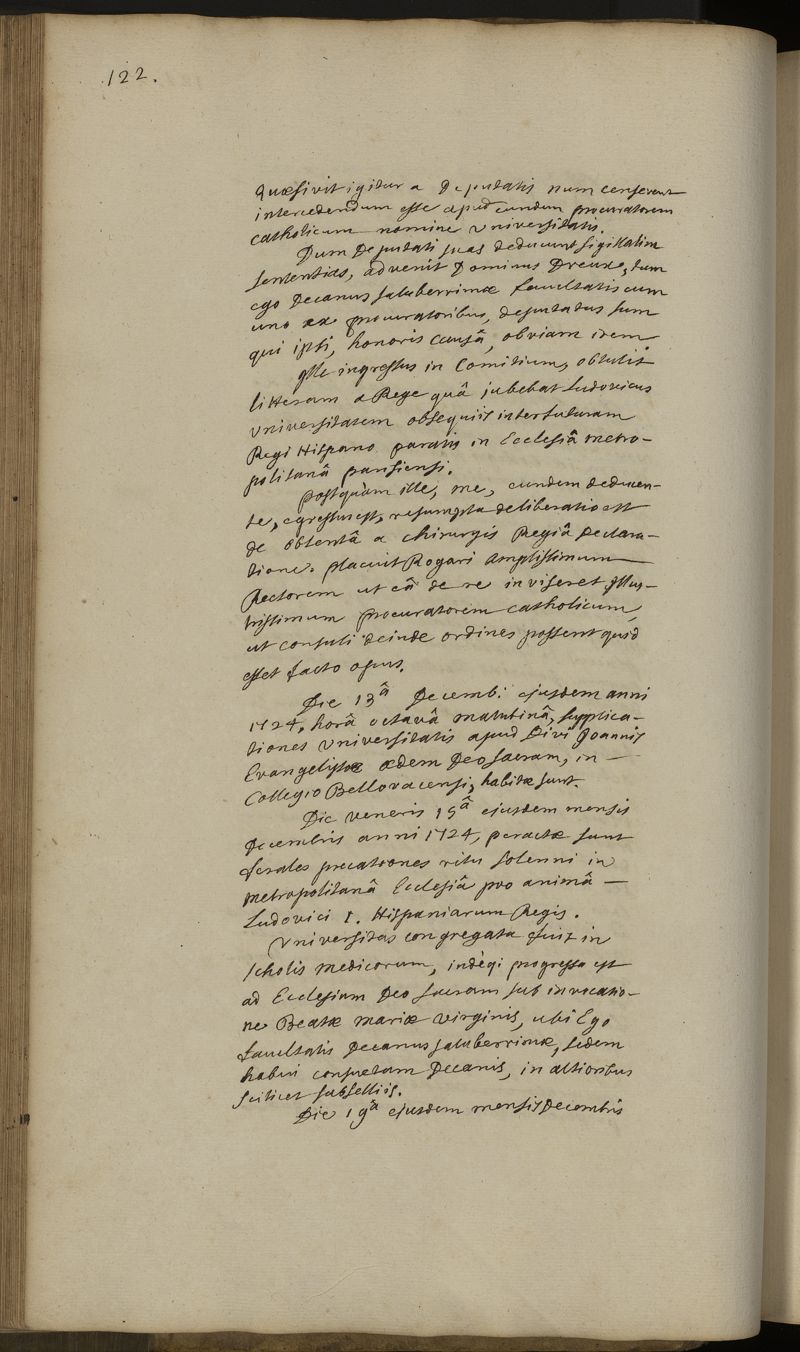 122.
Quæsivit igitur a Deputatis num censerent
intercedendum esse apud eundem procuratorem
catholicum nomine Universitatis.
Dum Deputati suas deducunt sigillatim
sententias, advenit Dominus Dreux, tum
ego Decanus saluberrimæ facultatis cum
uno ex procuratoribus, deputatus sum
qui ipsi, honoris causâ, obviam irem.
Ille ingressus in Comitium, obtulit
litteram a Rege quâ jubebat Ludovicus
Universitatem obsequiis interfuturam
Regi Hispano paratis in Ecclesiâ metro-
politanâ parisiensi.
postquàm ille, me, eundem deducen-
te, egressus est, resumpta deliberatio est
de obtentâ a chirurgis Regiâ Declara-
tione. placuit Rogari Amplissimum
Rectorem ut eâ de re inviseret Illus-
trissimum procuratorem catholicum,
ut consuli deinde ordines possent quid
esset facto opus.
Die 13â Decemb. ejusdem anni
1724, horâ octavâ matutinâ, supplica-
tiones Universitatis apud Divi Joannis
Evangelistæ ædem Deo sacram, in —
Collegio Bellovacensi, habitæ sunt.
Die veneris 15â ejusdem mensis
Decembris anni 1724, peractæ sunt
ferales precationes ritu solenni in
metropolitanâ Ecclesiâ pro animâ —
Ludovici I. Hispaniarum Regis.
Universitas congregata fuit in
scholis medicorum, indèqi progressa est
ad Ecclesiam Deo sacram sub invocatio-
ne Beatæ mariæ virginis, ubi Ego
facultatis Decanus saluberrimæ, sedem
habui consuetam Decanis, in altioribus
scilicet subselliis.
Die 19â ejusdem mensis Decembris